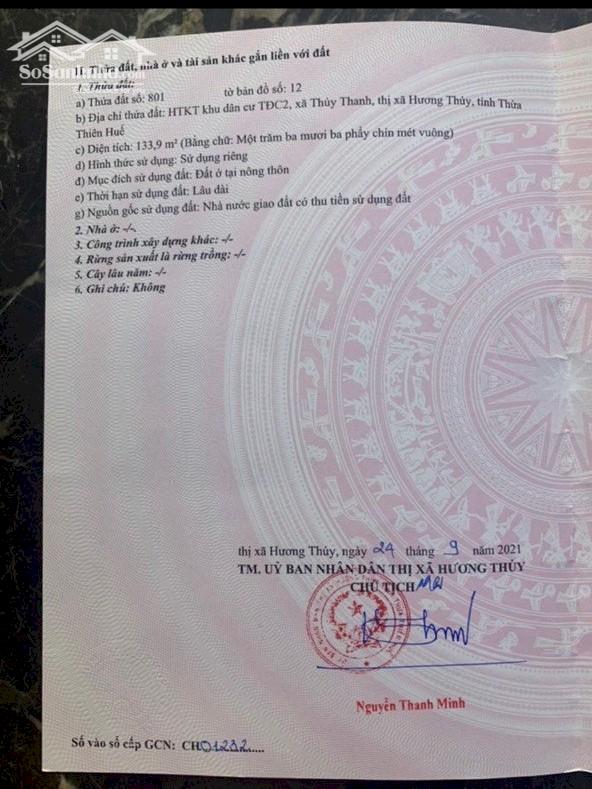 SoSanhnha.com
II. Thửa đất, nhà ở và tài sản khác gắn liền với đất
1. Thửa đất:
a) Thửa đất số: 801 tờ bản đồ số: 12
b) Địa chỉ thửa đất: HTKT khu dân cư TĐC2, xã Thủy Thanh, thị xã Hương Thủy, tỉnh Thừa
Thiên Huế
c) Diện tích: 133,9 m² (Bằng chữ: Một trăm ba mươi ba phẩy chín mét vuông)
d) Hình thức sử dụng: Sử dụng riêng
đ) Mục đích sử dụng đất: Đất ở tại nông thôn
e) Thời hạn sử dụng đất: Lâu dài
g) Nguồn gốc sử dụng đất: Nhà nước giao đất có thu tiền sử dụng đất
2. Nhà ở: -/-
3. Công trình xây dựng khác: -/-
4. Rừng sản xuất là rừng trồng: -/-
5. Cây lâu năm: -/-
6. Ghi chú: Không
thị xã Hương Thủy, ngày 24 tháng 9 năm 2021
TM. UỶ BAN NHÂN DÂN THỊ XÃ HƯƠNG THỦY
CHỦ TỊCH
Nguyễn Thanh Minh
Số vào sổ cấp GCN: CH01232.....